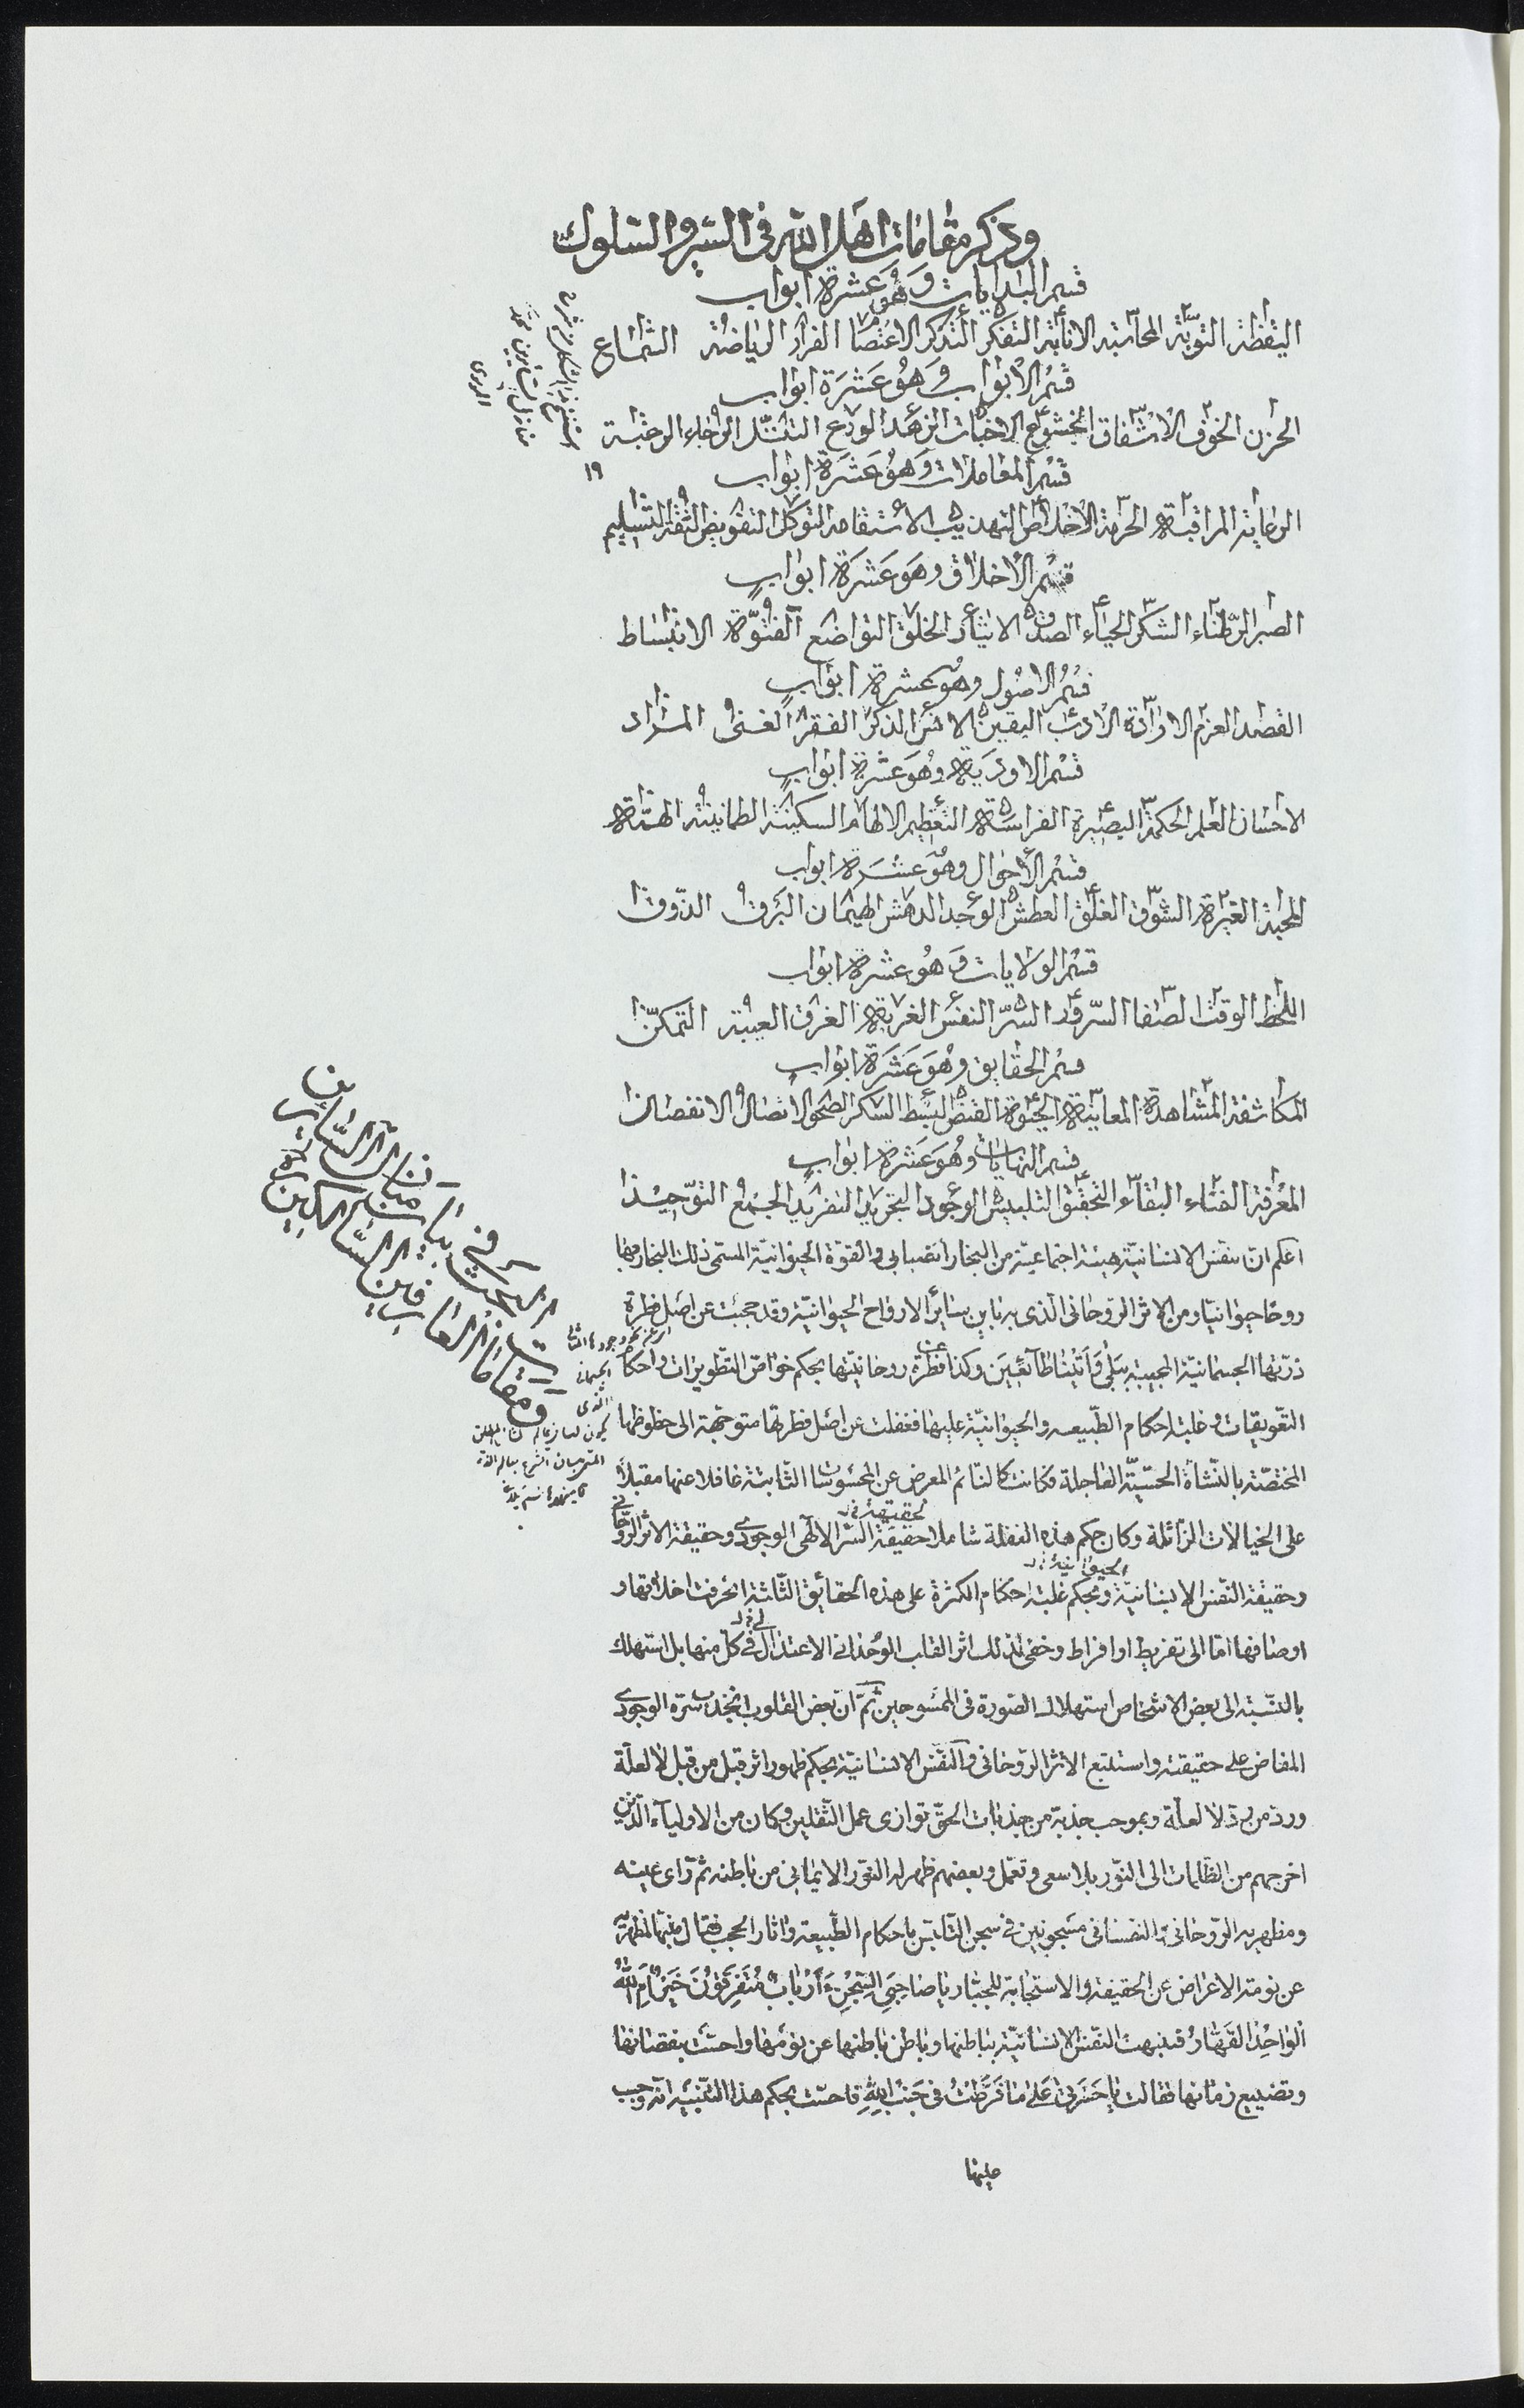 وذكر مقامات اهل الله فى السير والسلوك
قسم البدايات وَهُو عَشرة ابواب
اليقظة التوبَة المحاسبة الانابة التفكر التذكر الاعتصام الفرار الرياضة السَماع
قسْم الأبواب وَهُو عَشَرَة ابواب
الحزن الخوف الاشفاق الخشوع الاخبات الزهد الورع التبتّل الرجاء الرغبة
قسْم المعاملات وَهُو عَشَرة ابواب
الرعاية المراقبة الحرمة الاخلاص التهذيب الاستقامه التوكل التفويض الثقة التسليم
قسْم الأخلاق وهَو عَشرَة ابوابٍ
الصبر الرّضاء الشكر الحياء الصدق الايثار الخلق التواضع الفتوّة الانبساط
قسْمُ الاصُول وهُو عَشرة ابوابٍ
القصد العزم الارادة الادب اليقين الانس الذكر الفقر الغنى المراد
قسْم الاودَية وهُو عَشرة ابوابٍ
الاحسان العلم الحكمة البصيرة الفراسة التعظيم الالهام السكينة الطمانينة الهمّة
قسْم الأحوال وهُو عشرَة ابواب
المحبة الغيرة الشوق القلق العطش الوجد الدهش الهيمان البرق الذّوق
قسْم الولايات وَهُو عشرة ابواب
اللحظ الوقت الصفا السّرور السّرّ النفس الغربة الغرق الغيبة التمكّن
قسم الحقايق وهُوَ عَشَرَة ابواب
المكاشفة المشاهدة المعاينة الحيوة القبض البسط السكر الصحو الاتصال الانفصال
قسم النهايات وهُو عَشرة ابوابٍ
المعرفة الفناء البقاء التحقيق التلبيس الوجود التجريد التفريد الجمع التوّحيد
اعلم ان نفس الانسانيّة هيئة اجتماعيّة من البخار الضبابى والقوّة الحيوانيّة المسمى ذلك البخار مها
روحًا حيوانيّا ومن الاثر الرّوحانى الّذى به باين سايرَ الارواح الحيوانيّة وقد حجبت عن اصْل فطرة
ذرّتها الجسمانيّة المجيبة ببَلى وَاَتَيْنا طَآئعينَ وكذا عن فطرة روحانيّتها بحكم خواصّ التّطويرات واحكام
التّعويقات وغلبة احكام الطّبيعه والحيوانيّة عليها فغفلت عن اصْل فطرتها متوجّهة الى حظوظها
المختصّة بالنّشأة الحسّيّة العاجلة فكانت كالنّائم المعرض عن المحسُوسات الثّابتة غافلا عنها مقبلًا
على الخيالات الزّائلة وكان حكم هذه الغفلة شاملا حقيقة السّرّ الآلهى الوجودى وحقيقة الاثر الرّوحانى
وحقيقة النّفس الانسانيّة وبحكم غلبة احكام الكثرة على هذه الحقائق الثّلثة انحرفت اخلاقها و
اوصافها امّا الى تفريط او افراط وخفى لذلك اثر القلب الوُحدانى الاعتدالى فى كلّ منها بل استهلك
بالنّسبة الى بعض الاشخاص استهلاك الصّورة فى الممسُوحين ثمّ انّ بعض القلوب انجذب سرّه الوجودى
المفاض على حقيقته واستتبع الاثر الرّوحانى والنّفس الانسانيّة بحكم ظهور اثر قبل من قبل لا لعلّة
وردّ من ردّ لا لعلّة وبموجب جذبة من جذبات الحقّ توازى عمل الثّقلين وكان من الاوليآء الّذين
اخرجهم من الظّلمات الى النّور بلا سعى وتعمّل وبعضهم ظهر له النّور الايمانى من باطنه ثمّ رآى عينه
ومظهريه الرّوحانىّ والنّفسانى مسجونين فى سجن التلبّس باحكام الطّبيعة واثار الحجب فقال
عن نومة الاعراض عن الحقيقة والاستجابة للجبّار يا صاحِبَىِ السِّجْنِ ءَاَرْبابٌ مُتَفَرِّقُونَ خَيْرٌ اَمِ اللّٰهُ
الْواحِدُ القَهّارُ فتنبهت النّفس الانسانيّة بباطنها وباطن باطنها عن نومها واحسّت بنقصانها
وتضييع زمانها فقالت يا حَسْرَتى عَلى ما فَرَّطْتُ فى جَنْبِ اللّٰهِ فاحسّت بحكم هذا التّنبيه انّه وجب
عليها
١٩